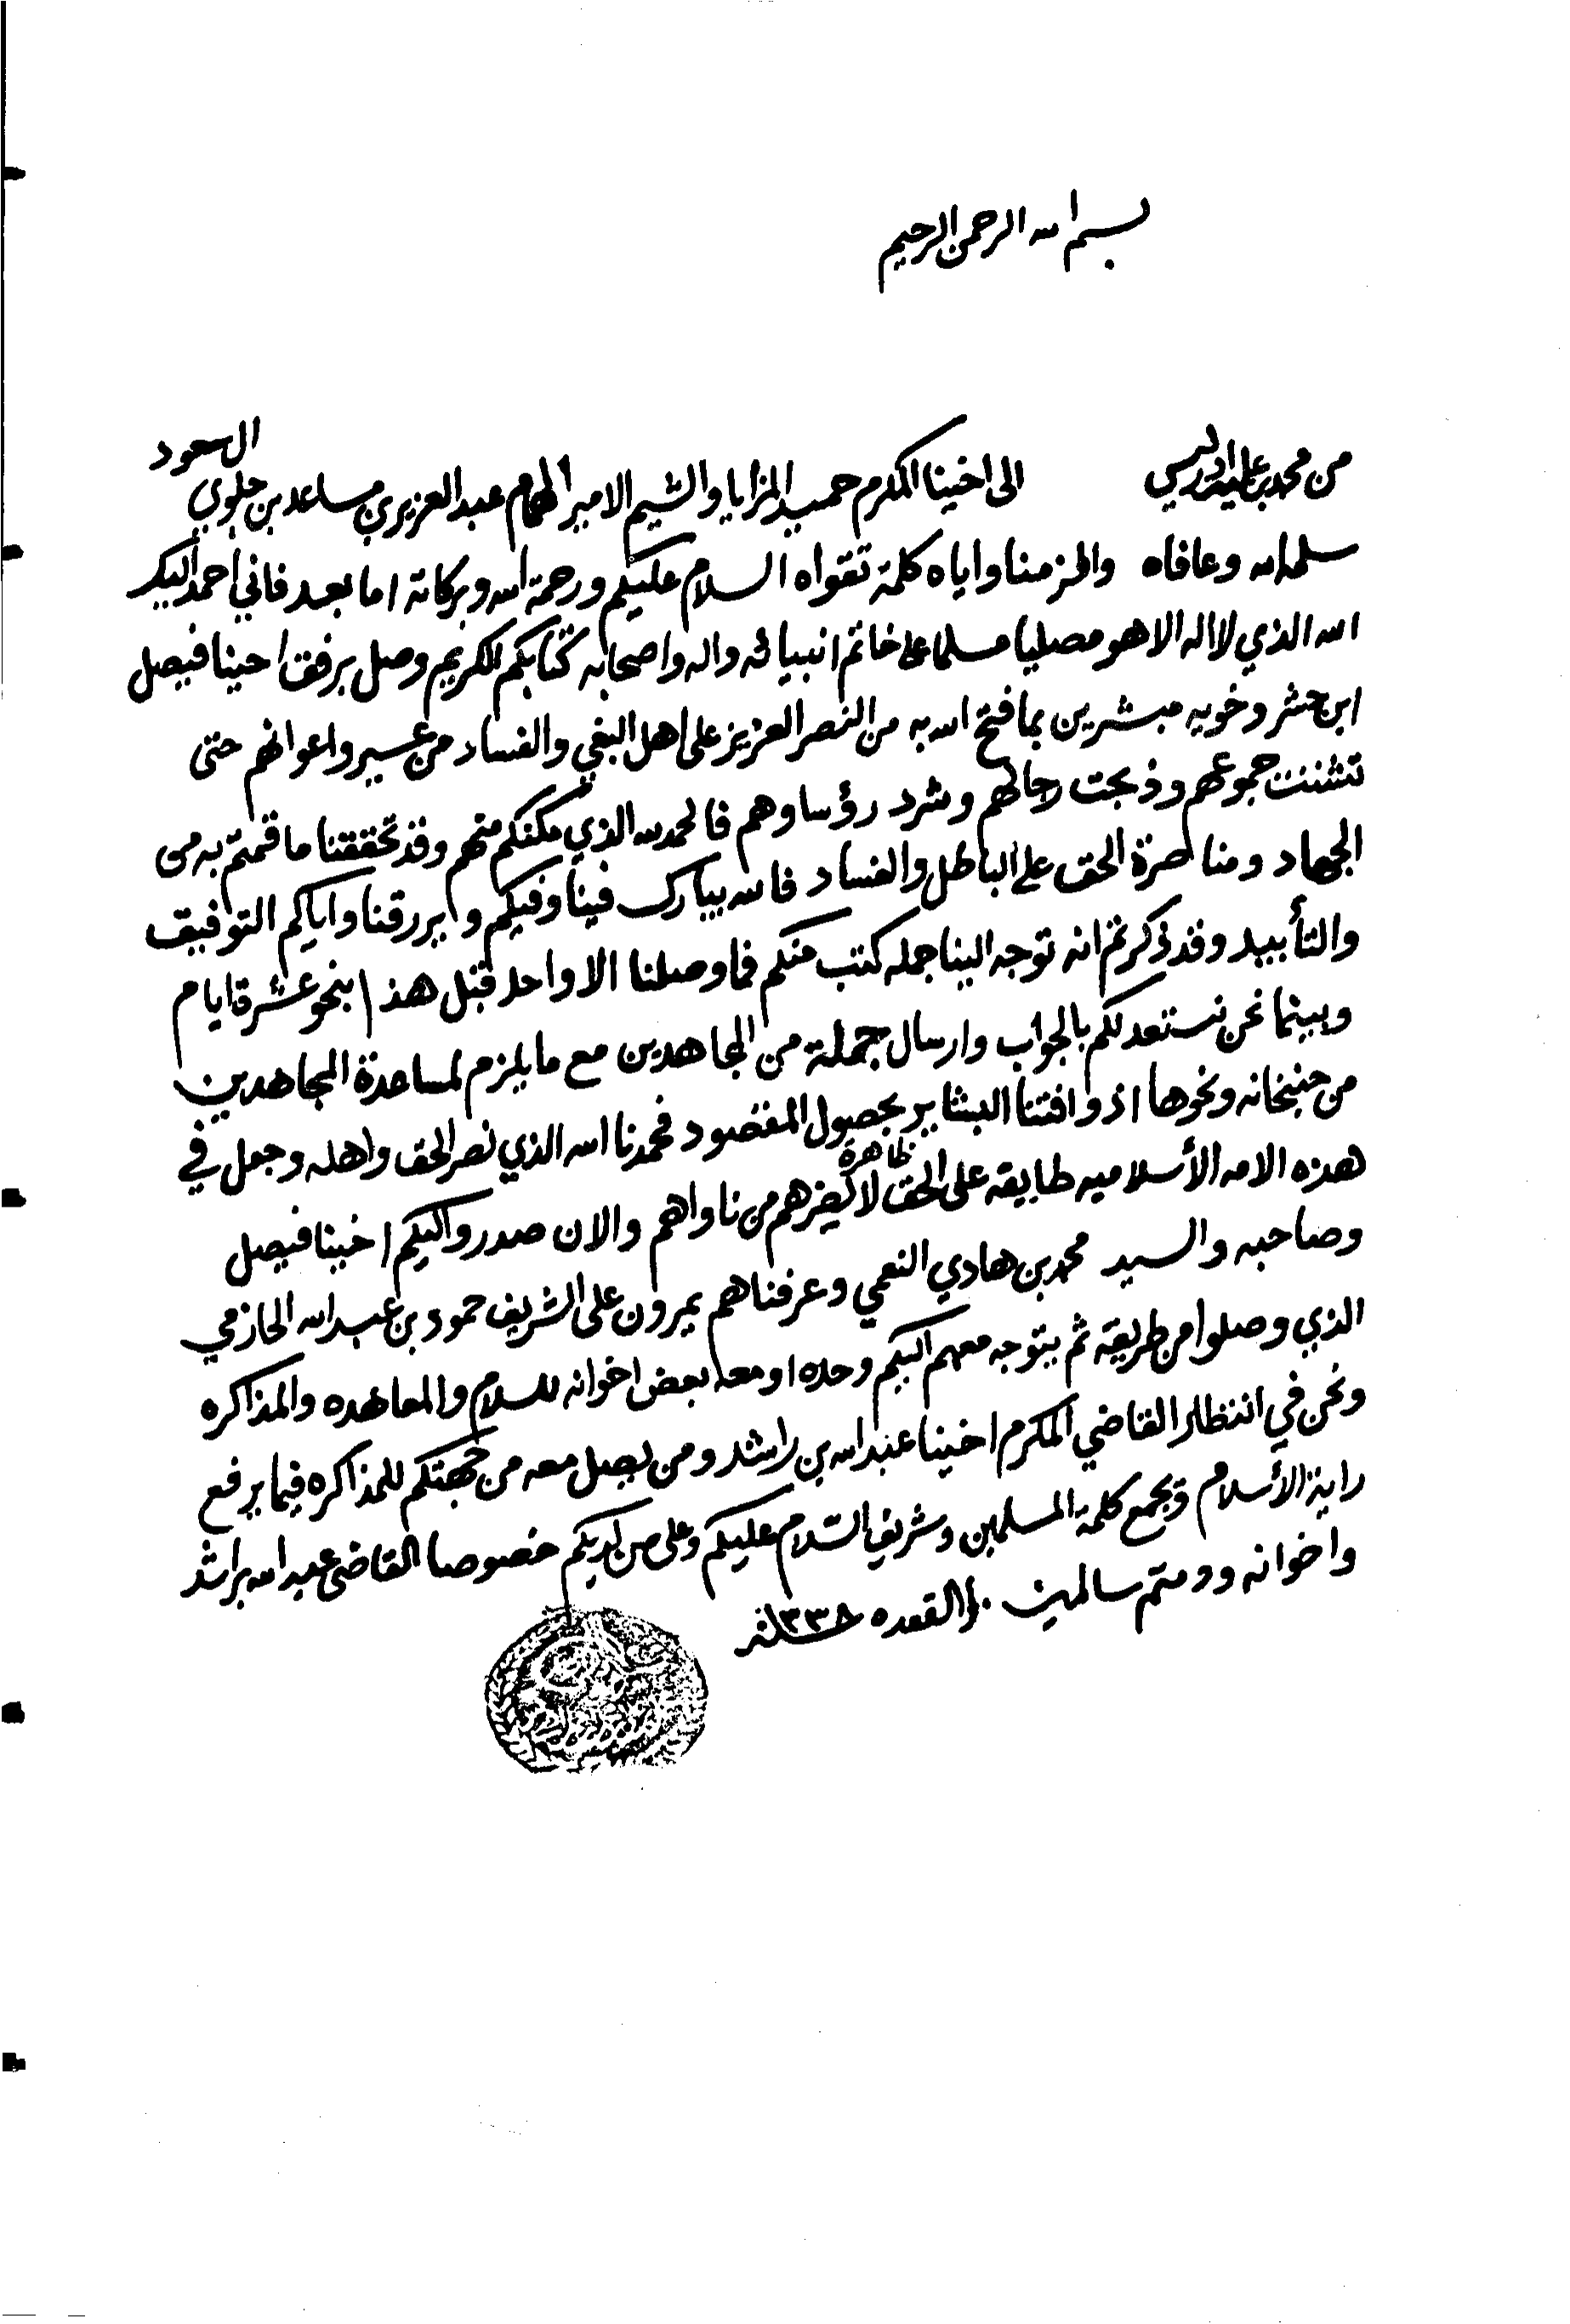 بسم الله الرحمن الرحيم
من محمد بن علي ادريسي الى اخينا المكرم حميد المزايا والشيم الامير الهمام عبد العزيز بن مساعد بن جلوي ال سعود
سلمه الله وعافاه والزمنا واياه كلمة تقواه السلام عليكم ورحمة الله وبركاته اما بعد فاني احمد اليكم
الله الذي لا اله الا هو مصليا مسلما على خاتم انبيائه واله واصحابه كتابكم الكريم وصل برفق اخينا فيصل
ابن حشر وخويه مبشرين بما فتح الله به من النصر العزيز على اهل البغي والفساد من عسير واعوانهم حتى
تشتت جموعهم وذبحت رجالهم وشرد رؤساوهم فالحمد لله الذي مكنكم منهم وقد تحققنا ما قمتم به من
الجهاد ومناصرة الحق على الباطل والفساد فالله يبارك فينا وفيكم ويرزقنا واياكم التوفيق
والتأييد وقد ذكرتم انه توجه الينا جمله كتب منكم فما وصلنا الا واحد قبل هذا بنحو عشرة ايام
وبينما نحن نستعد لكم بالجواب وارسال جملة من المجاهدين مع ما يلزم لمساعدة المجاهدين
من جبخانه ونحوها اذ وافتنا البشاير بحصول المقصود فحمدنا الله الذي نصر الحق واهله وجعل في
هذه الامه الأسلاميه طايفه على الحق ظاهرة لا يضرهم من ناواهم والان صدروا اليكم اخينا فيصل
وصاحبه والسيد محمد بن هادي النعمي وعرفناهم يمرون على الشريف حمود بن عبد الله الحازمي
الذي وصلوا من طريقه ثم يتوجه معهم اليكم وحده او معه بعض اخوانه للسلام والمعاهده والمذاكره
ونحن في انتظار القاضي المكرم اخينا عبد الله بن راشد ومن يصل معه من جهتكم للمذاكره فيما يرفع
راية الأسلام ويجمع كلمة المسلمين وشريف السلام عليكم وعلى من لديكم خصوصا القاضي عبد الله بن راشد
واخوانه ودمتم سالمين القعده سنة ١٣٣٨